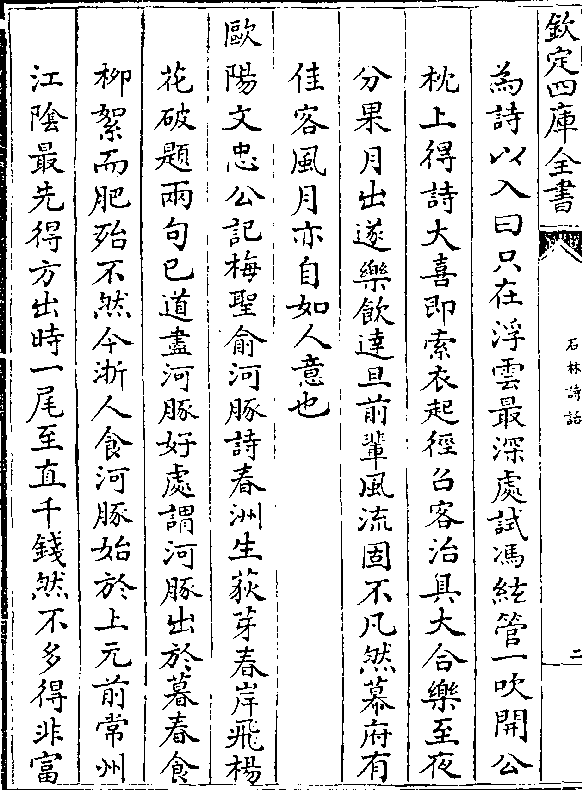 欽定四庫全書
石林詩話
二
為詩以入曰只在浮雲最深處試馮絃管一吹開公
枕上得詩大喜即索衣起徑召客治具大合樂至夜
分果月出遂樂飲達旦前輩風流固不凡然幕府有
佳客風月亦自如人意也
歐陽文忠公記梅聖俞河豚詩春洲生荻芽春岸飛楊
花破題兩句已道盡河豚好處謂河豚出於暮春食
柳絮而肥殆不然今浙人食河豚始於上元前常州
江陰最先得方出時一尾至直千錢然不多得非富